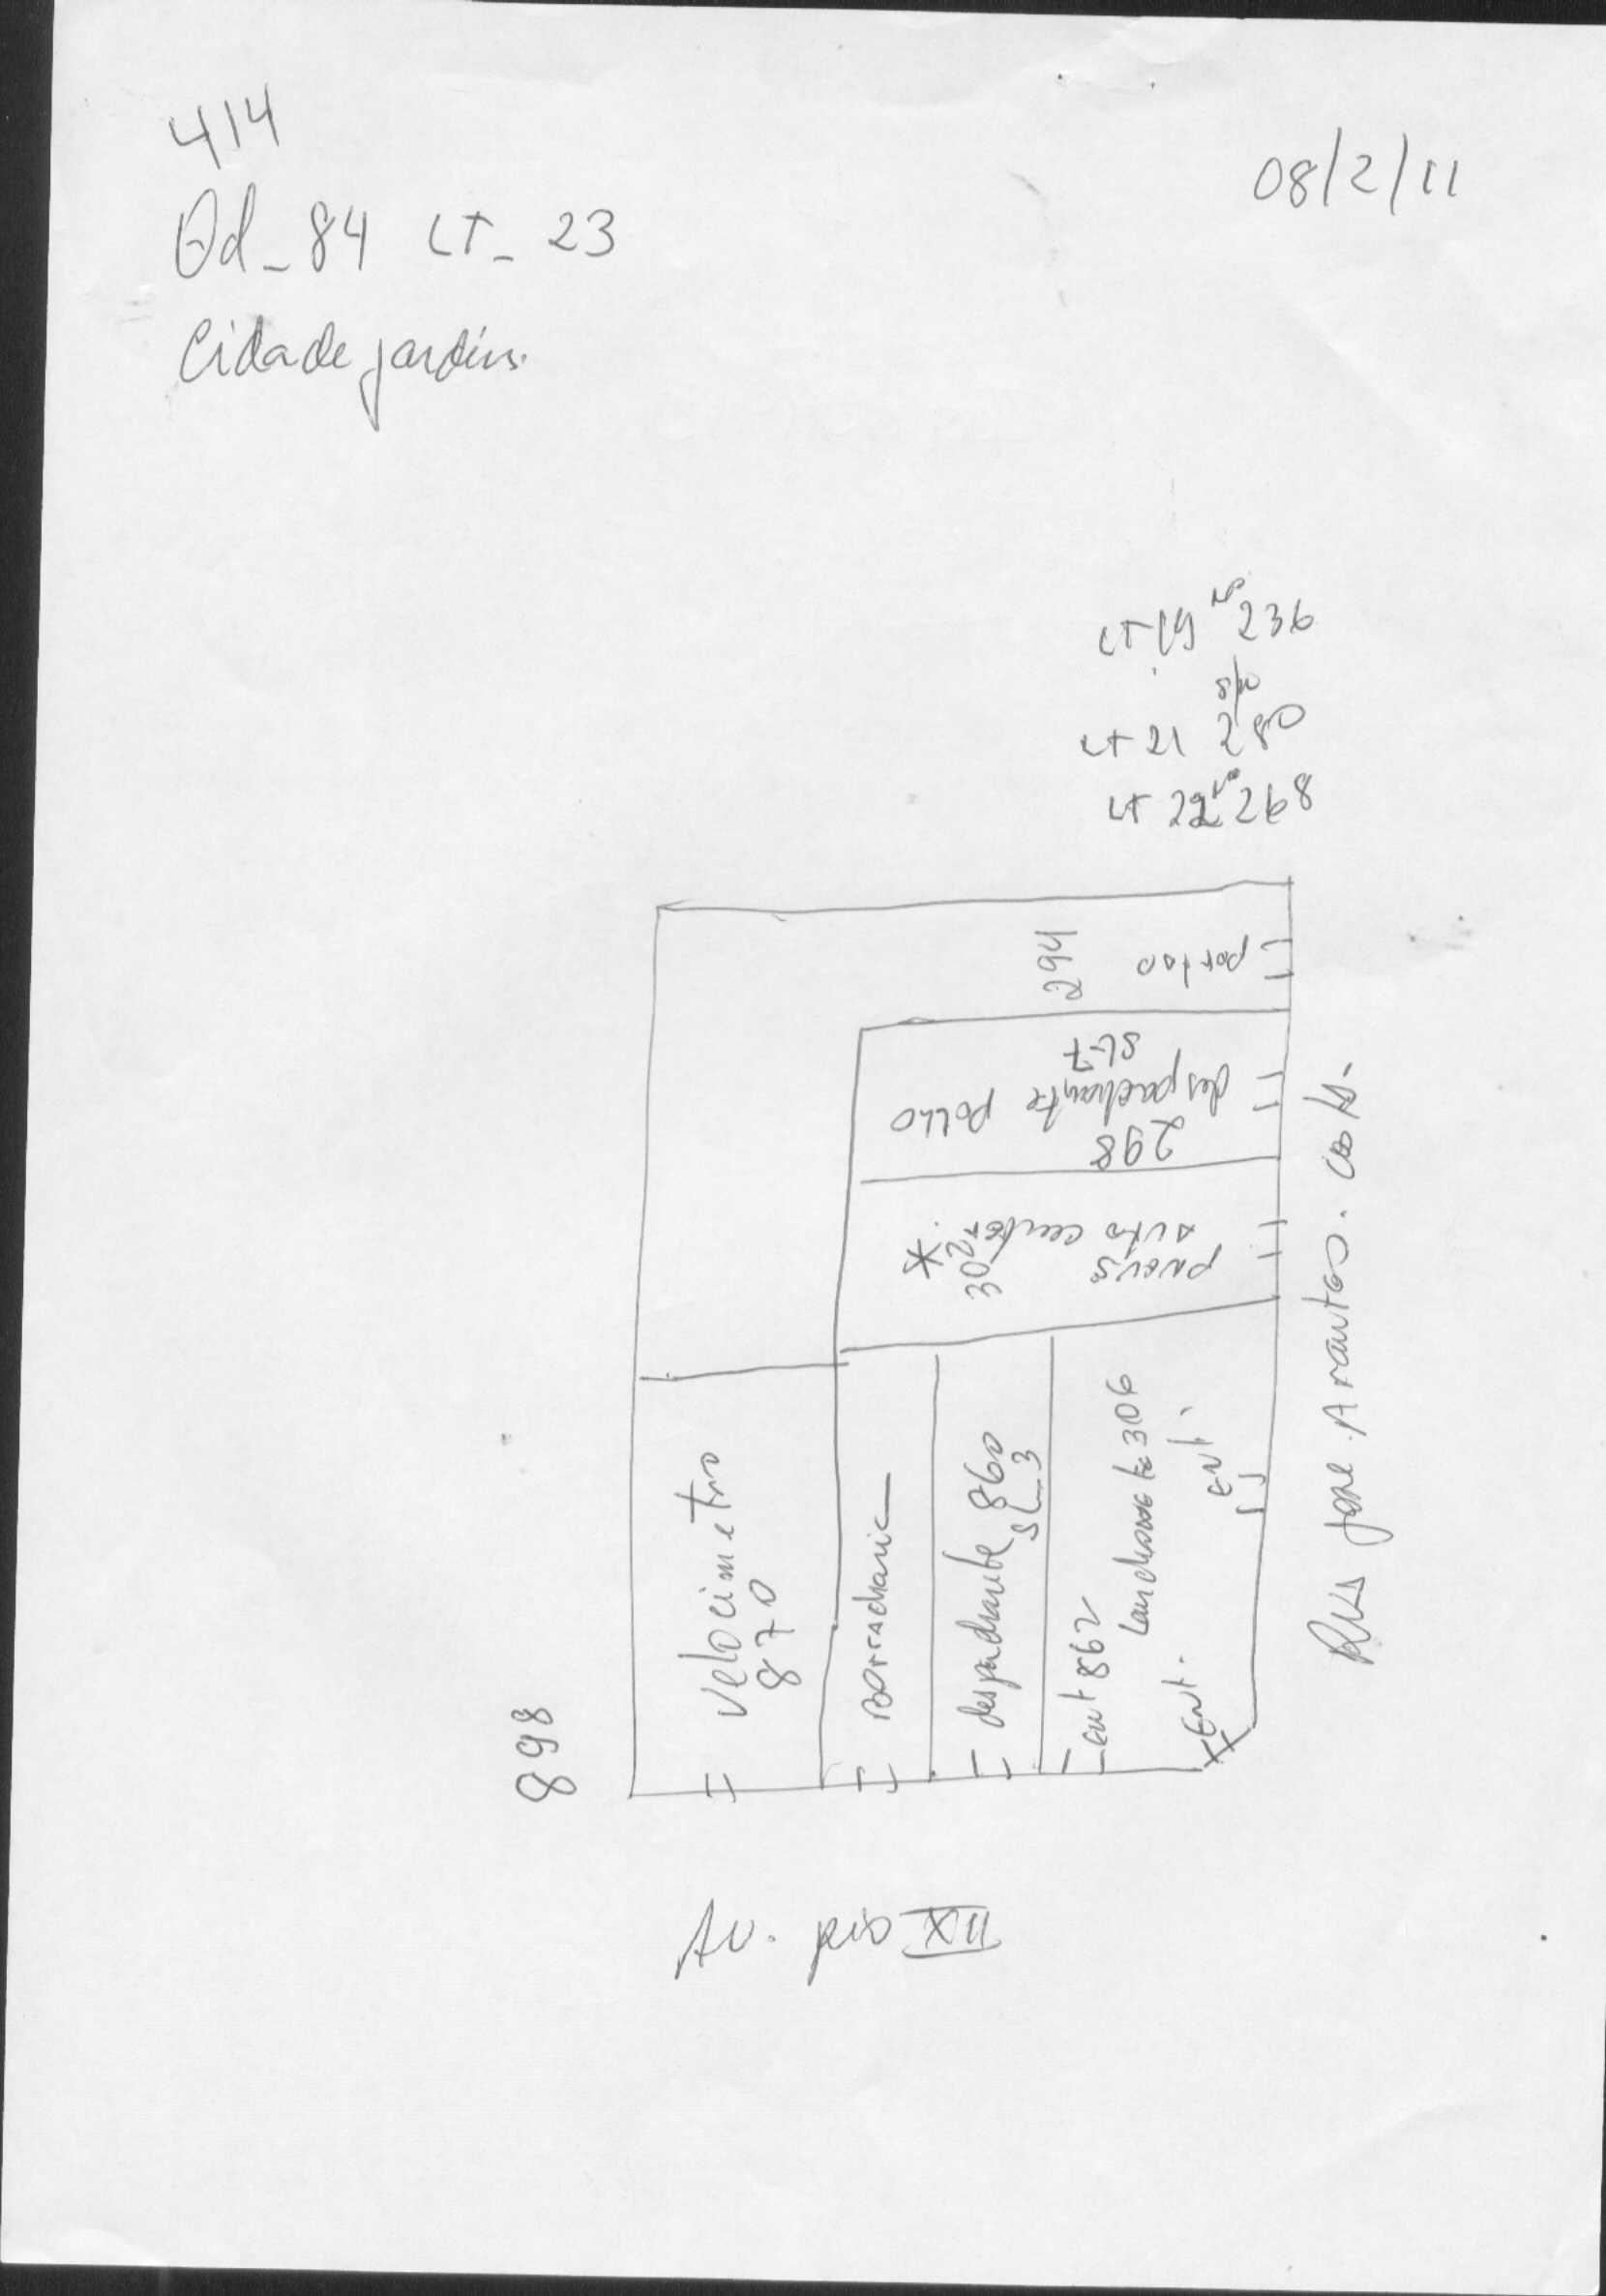 414
08/2/11
Qd_84 LT_ 23
Cidade jardim.
LT 19 Nº 236
LT 21 280
LT 22 Nº 268
294
portão
SL-7
despachante
298
302
*
pneus
auto center
velocimetro
870
Borracharia
despachante 860
SL_3
ent 862
Lanchonete 306
ENT.
ENT.
898
Rua Jose
Av. pio XII